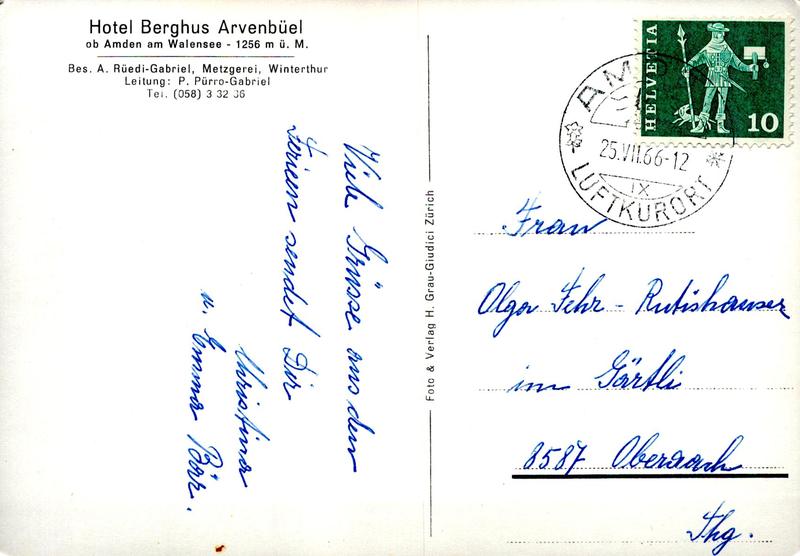 Hotel Berghus Arvenbüel
ob Amden am Walensee - 1256 m ü. M.
Bes. A. Rüedi-Gabriel, Metzgerei, Winterthur
Leitung: P. Pürro-Gabriel
Tel. (058) 3 32 36
Viele Grüsse aus den
Ferien sendet Dir
Christina
u. Emma Bär.
Foto & Verlag H. Grau-Giudici Zürich
HELVETIA
10
25.VII.66-12
IX
LUFTKURORT
Frau
Olga Fehr-Rutishauser
im Gärtli
8587 Oberaach
Thg.